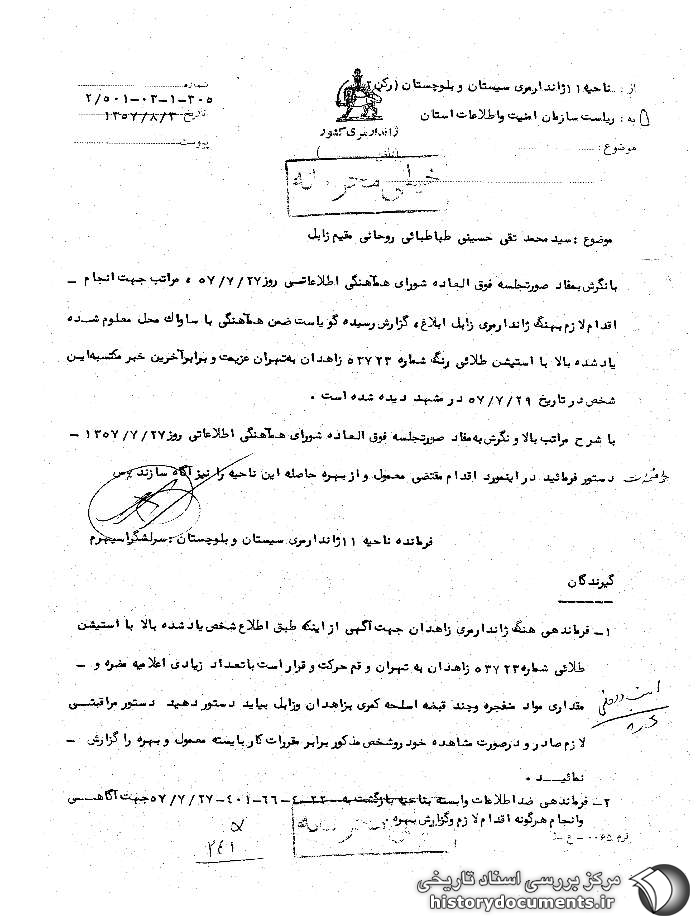 از : ناحیه ۱۱ ژاندارمری سیستان و بلوچستان (رکن ۲
به : ریاست سازمان امنیت و اطلاعات استان
موضوع :
ژاندارمری کشور
شماره
۲/۵۰۱-۰۳-۱-۳۰۵
تاریخ ۱۳۵۷/۸/۳
پیوست
خیلی محرمانه
موضوع : سید محمد تقی حسینی طباطبائی روحانی مقیم زابل
با نگرش بمفاد صورتجلسه فوق العاده شورای هماهنگی اطلاعاتی روز ۵۷/۷/۲۷ ، مراتب جهت انجام ـ
اقدام لازم بهنگ ژاندارمری زابل ابلاغ ، گزارش رسیده گویاست ضمن هماهنگی با ساواك محل معلوم شده
یادشده بالا با استیشن طلائی رنگ شماره ۵۳۷۲۳ زاهدان به تهران عزیمت و برابر آخرین خبر مکتسبه این
شخص در تاریخ ۵۷/۷/۲۹ در مشهد دیده شده است .
با شرح مراتب بالا و نگرش به مفاد صورتجلسه فوق العاده شورای هماهنگی اطلاعاتی روز ۱۳۵۷/۷/۲۷ ـ
دستور فرمائید در اینمورد اقدام مقتضی معمول و از بهره حاصله این ناحیه را نیز آگاه سازند
فرمانده ناحیه ۱۱ ژاندارمری سیستان و بلوچستان : سرلشگر اسپهرم
گیرندگان
۱ـ فرماندهی هنگ ژاندارمری زاهدان جهت آگهی از اینکه طبق اطلاع شخص یادشده بالا با استیشن
طلائی شماره ۵۳۷۲۳ زاهدان به تهران و قم حرکت و قرار است با تعداد زیادی اعلامیه مضره و ـ
مقداری مواد منفجره و چند قبضه اسلحه کمری بزاهدان و زابل بیاید دستور دهید دستور مراقبتی
لازم صادر و در صورت مشاهده خودرو شخص مذکور برابر مقررات کار بایسته معمول و بهره را گزارش ـ
نمائید .
۲ـ فرماندهی ضد اطلاعات وابسته بناحیه بازگشت به ۲۳-۴-۶۶-۴۰۱-۵۷/۷/۲۷ جهت آگاهی
و انجام هرگونه اقدام لازم و گزارش بهره .
۲۴۱
مرکز بررسی اسناد تاریخی
historydocuments.ir